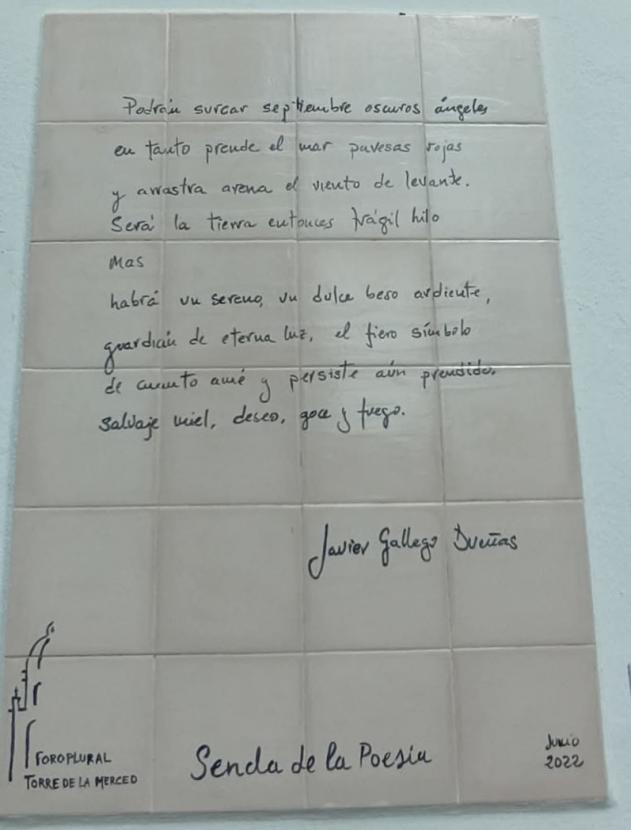 Podrán surcar septiembre oscuros ángeles
en tanto prende el mar pavesas rojas
y arrastra arena el viento de levante.
Será la tierra entonces frágil hilo
Mas
habrá un sereno, un dulce beso ardiente,
guardián de eterna luz, el fiero símbolo
de cuanto amé y persiste aún prendido,
salvaje miel, deseo, goce y fuego.
Javier Gallego Dueñas
FORO PLURAL
TORRE DE LA MERCED
Senda de la Poesía
Junio
2022